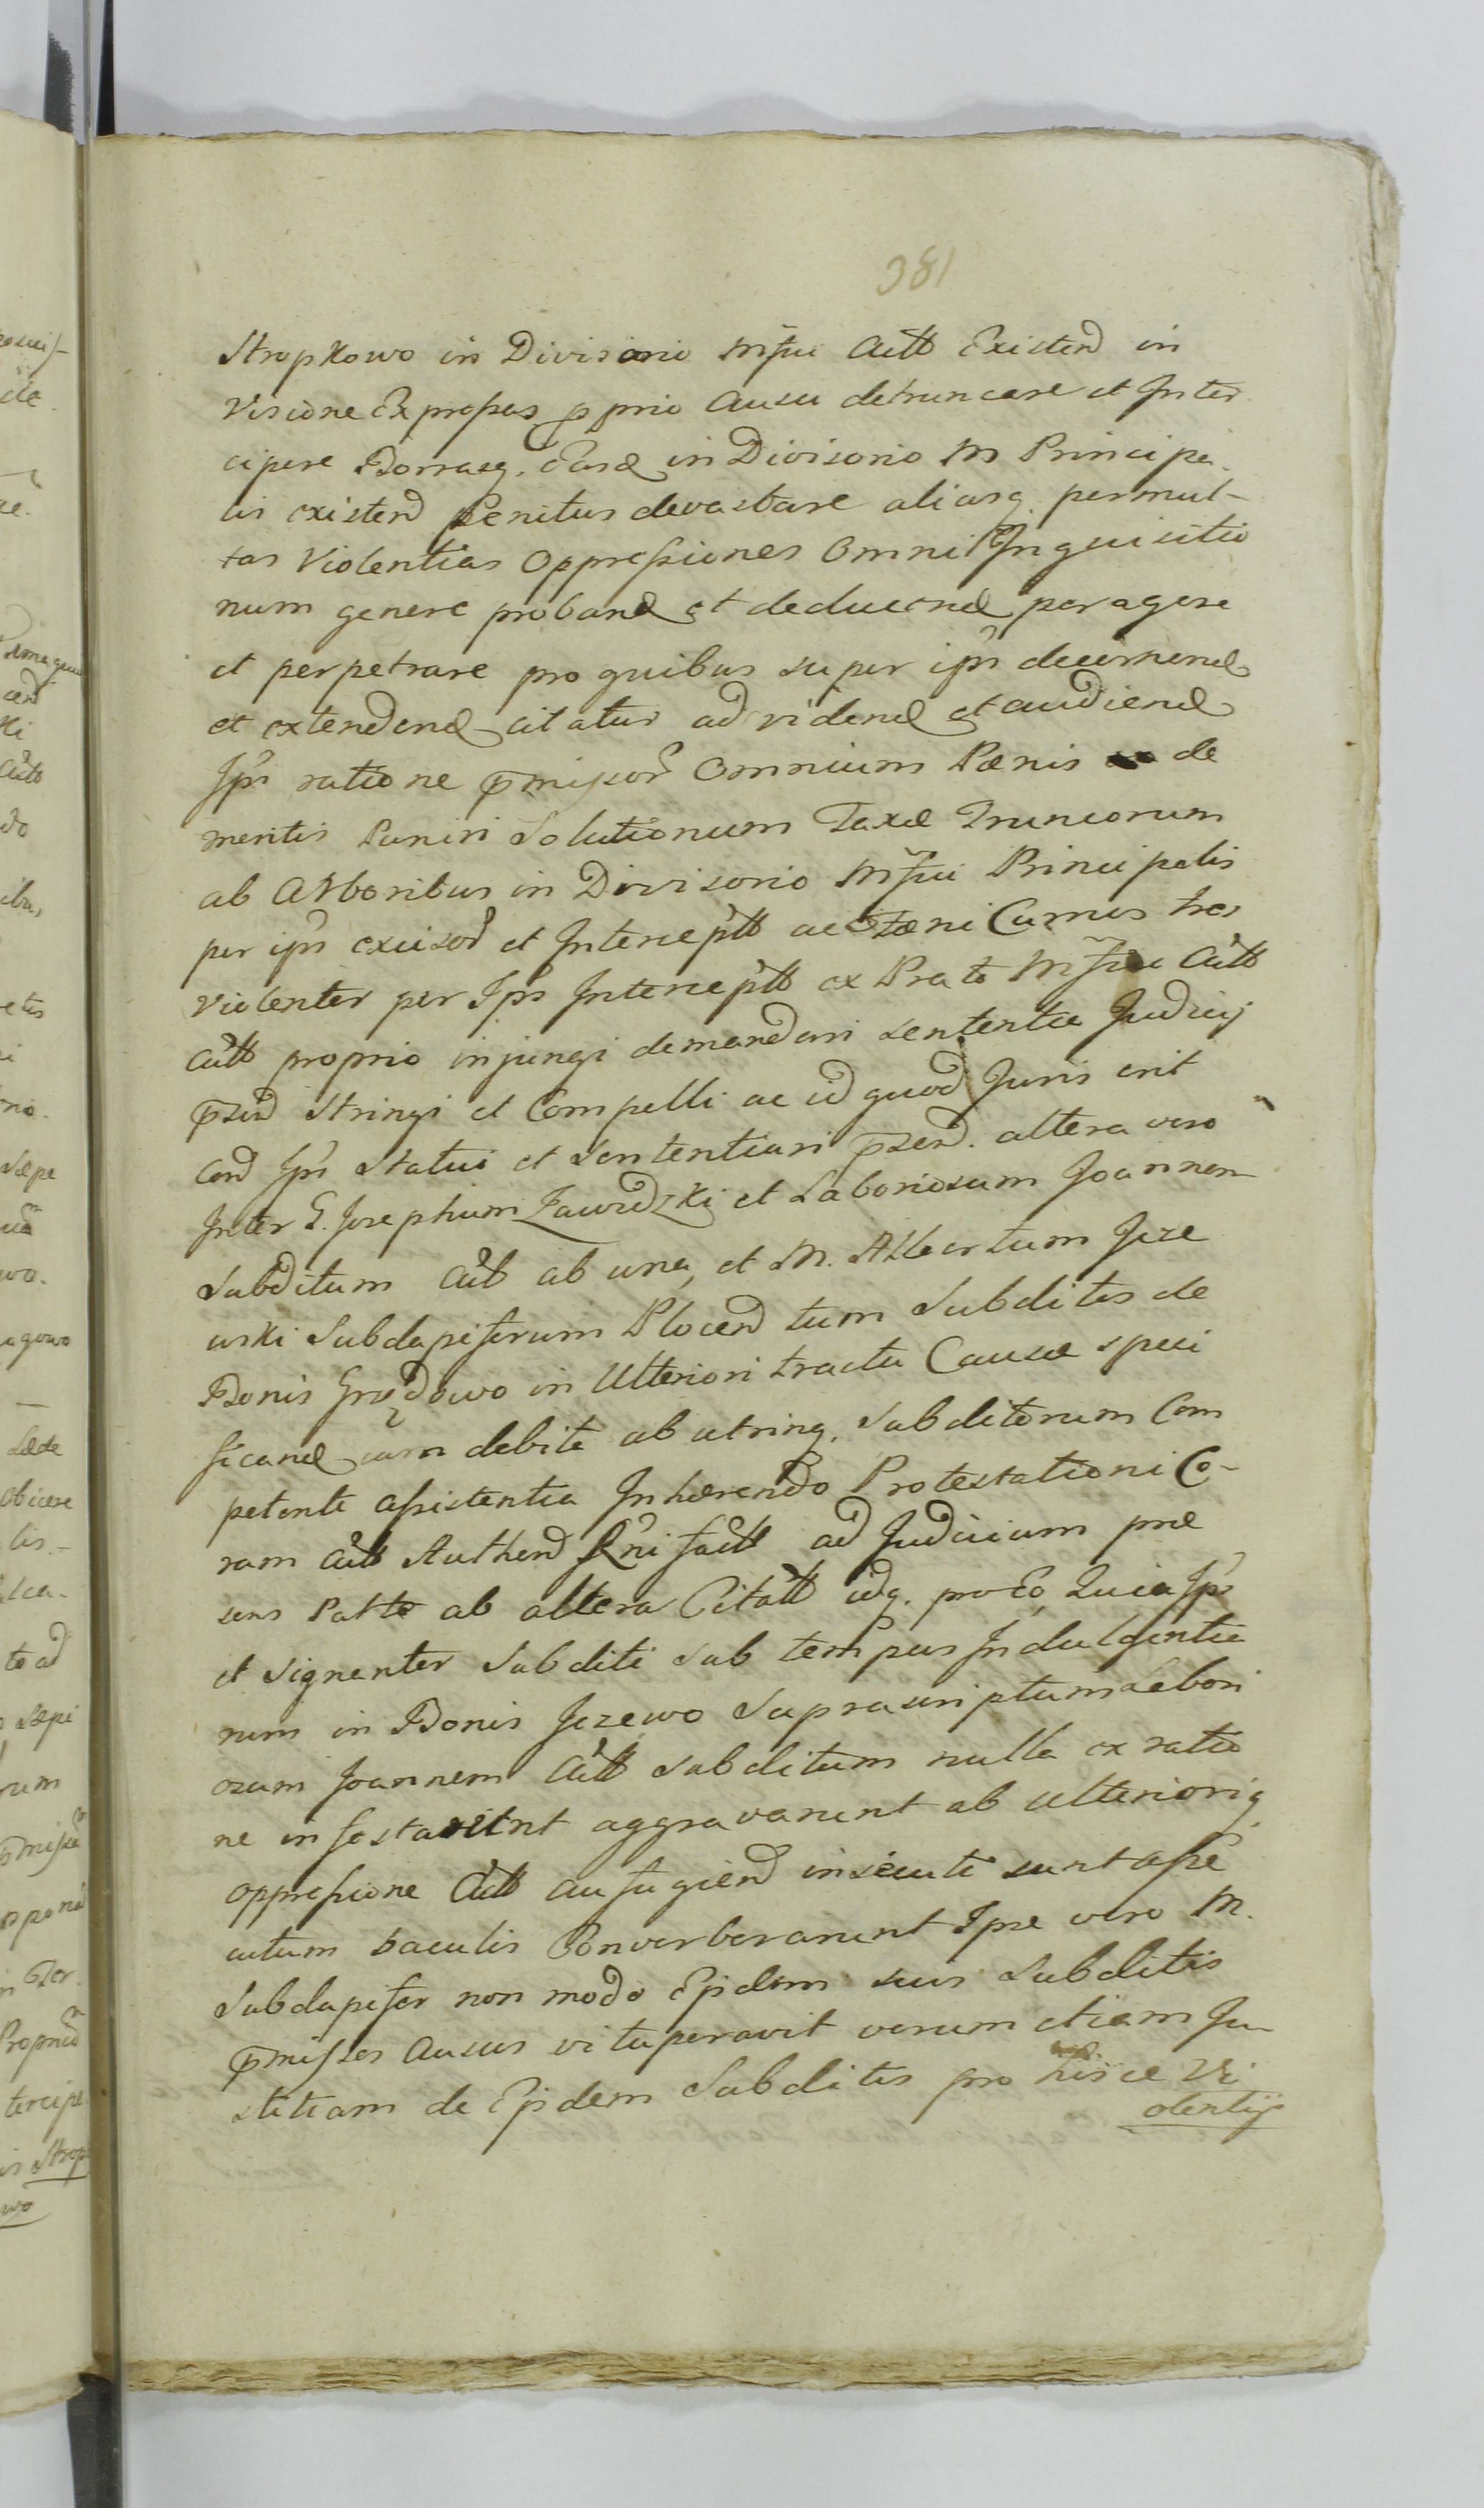 381
Stropkowo in Divisorio Mfci Actt Existend in
Visione Expressas pprio Ausu detruncare et Inter
cipere Borrasq. Easd in Divisorio M Principa
lis existend Penitus devastare aliasq. permul-
tas Violentias Oppressiones Omni Inquisitio
num genere proband et deducend peragere
et perpetrare pro quibus super ips decernend
et extendend citatur ad vidend et audiend
Ips ratione pmissor Omnium Pænis de
meritis Puniri Solutionum Taxæ Truncorum
ab Arboribus in Divisorio Mfci Principalis
per ips excisod et Interceptt ac Fæni Currus tres
Violenter per Ips Interceptt ex Prato Mfci Actt
Actt proprio injungi demandari sententia Judicij
pseñ Stringi et Compelli ac id quod Juris erit
Cerd Ips Statui et Sententiari psend. altera vero
Inter G. Josephum Zawidzki et Laboriosum Joannem
Subditum Actt ab una, et M. Albertum Jeze
wski Subdapiferum Plocend tum Subditos de
Bonis Grozdowo in Ulteriori tractu Causæ speci
ficand cum debita ab utrinq. Subditorum Com
petente assistentia Inhærendo Protestationi Co-
ram Actt Authend Rñi factt ad Judicium præ
sens Parte ab altera Citatt idq. pro Eo Quia Ips
et signenter Subditi sub tempus Indulgentia
rum in Bonis Jezewo Suprascriptum Labori
osum Joannem Actt Subditum nulla ex ratio
ne infestarunt aggravarunt ab ulteriorig
oppressione Actt aufugiend insecuti sunt asse
cutum baculis Converberarunt Ipse vero M.
Subdapifer non modo Ejsdem suis Subditis
pmissos Ausus vituperavit verum etiam Ju
stitiam de Ejsdem Subditis pro hisce Vi
olentijs